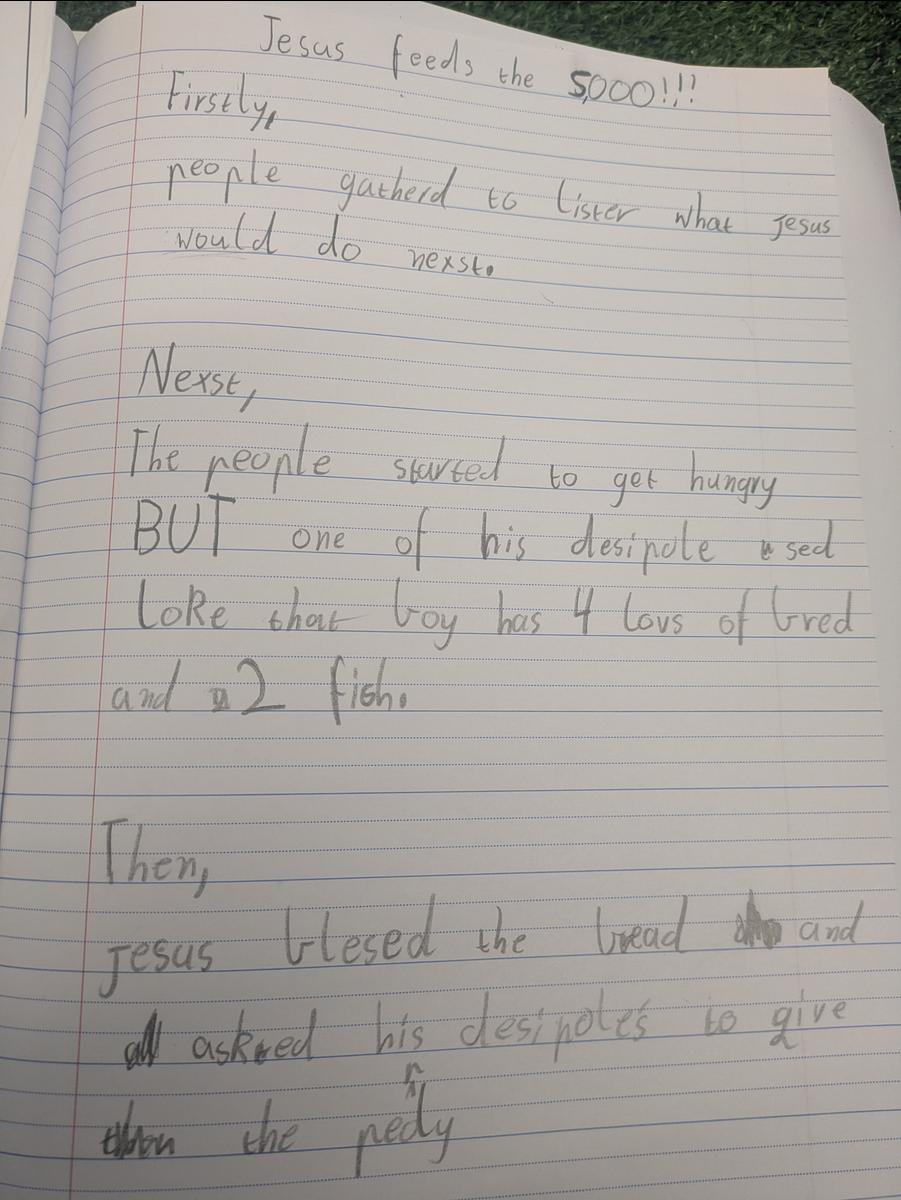 Jesus feeds the 5,000!!!
Firstly,
people gatherd to lister what jesus
would do nexst.
Nexst,
The people started to get hungry
BUT one of his desipole used
loke that boy has 4 lovs of bred
and 2 fish.
Then,
jesus blesed the bread and
asked his desipoles to give
the